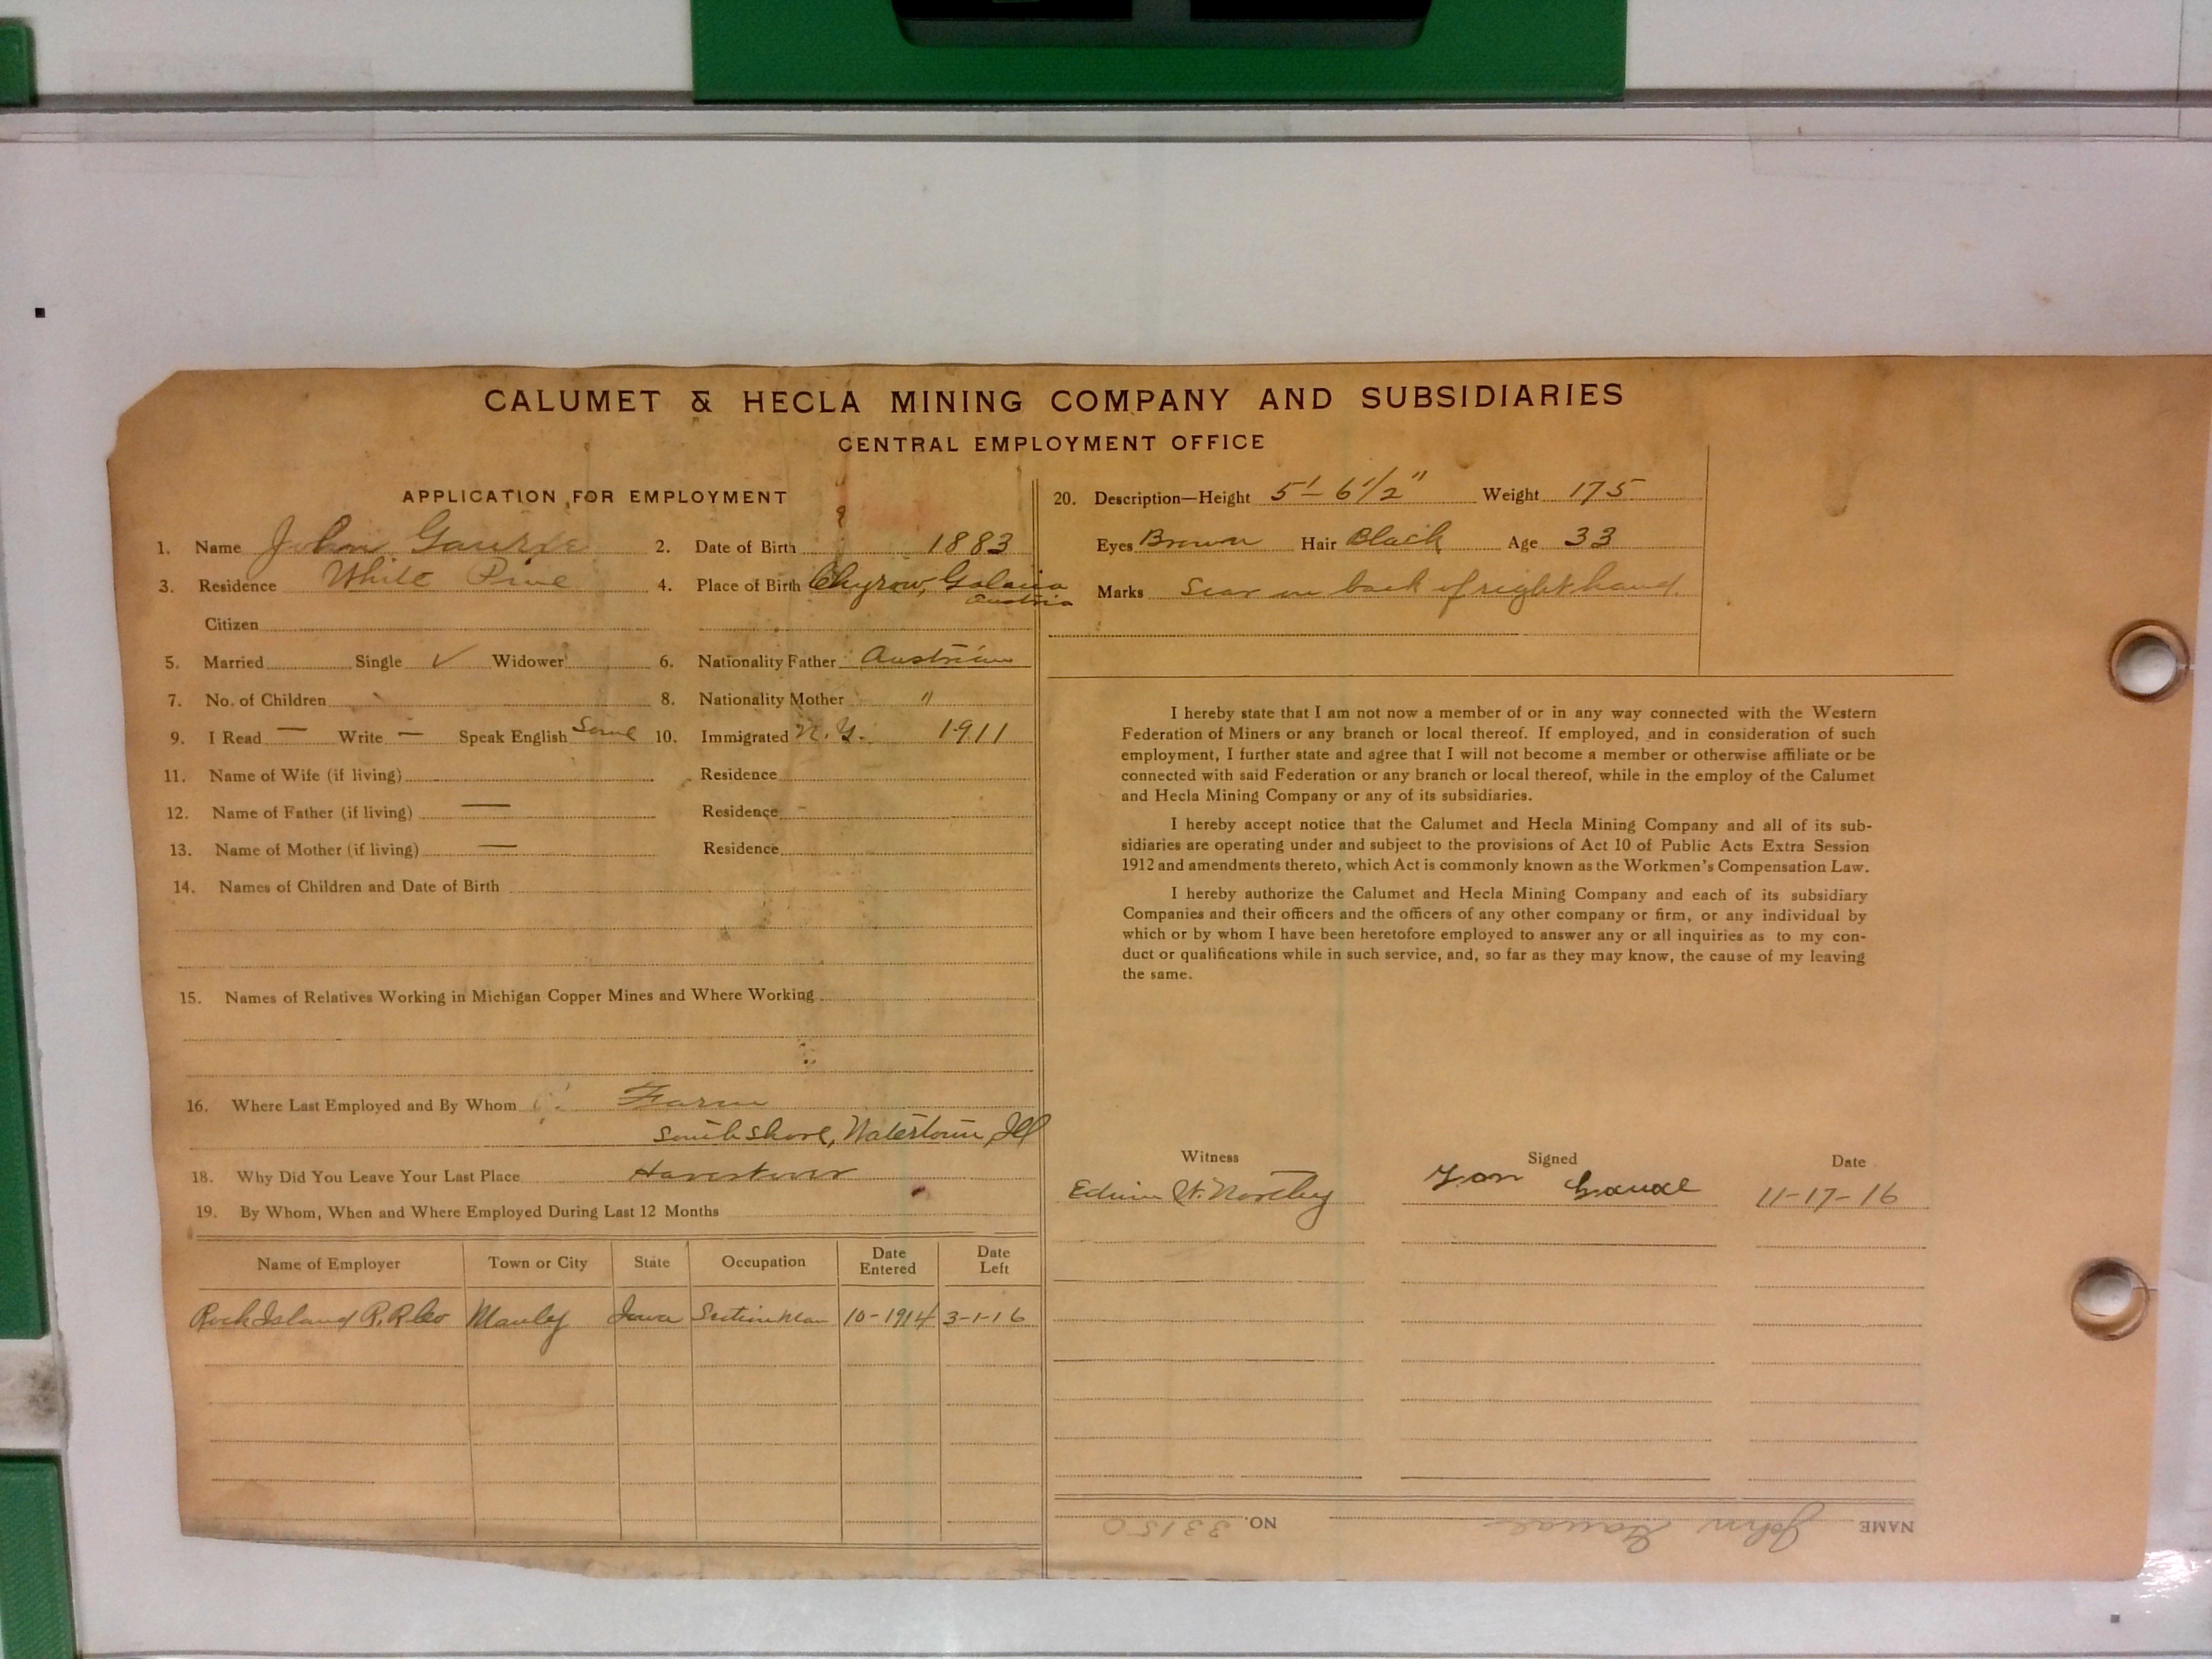 CALUMET & HECLA MINING COMPANY AND SUBSIDIARIES
CENTRAL EMPLOYMENT OFFICE
APPLICATION FOR EMPLOYMENT
1. Name John
2. Date of Birth 1883
3. Residence White Pine
4. Place of Birth Chyrow, Galacia
Austria
Citizen
5. Married Single ✓ Widower
6. Nationality Father Austrian
7. No. of Children
8. Nationality Mother "
9. I Read — Write — Speak English Some
10. Immigrated N.Y. 1911
11. Name of Wife (if living) Residence
12. Name of Father (if living) — Residence -
13. Name of Mother (if living) — Residence
14. Names of Children and Date of Birth
15. Names of Relatives Working in Michigan Copper Mines and Where Working
16. Where Last Employed and By Whom Farm
South Shore, Watertown, Ill
18. Why Did You Leave Your Last Place
19. By Whom, When and Where Employed During Last 12 Months
Name of Employer Town or City State Occupation Date Entered Date Left
Rock Island R.R Co Manley Iowa Section Man 10-1914 3-1-16
20. Description—Height 5'-6 1/2" Weight 175
Eyes Brown Hair Black Age 33
Marks Scar on back of right hand.
I hereby state that I am not now a member of or in any way connected with the Western
Federation of Miners or any branch or local thereof. If employed, and in consideration of such
employment, I further state and agree that I will not become a member or otherwise affiliate or be
connected with said Federation or any branch or local thereof, while in the employ of the Calumet
and Hecla Mining Company or any of its subsidiaries.
I hereby accept notice that the Calumet and Hecla Mining Company and all of its sub-
sidiaries are operating under and subject to the provisions of Act 10 of Public Acts Extra Session
1912 and amendments thereto, which Act is commonly known as the Workmen's Compensation Law.
I hereby authorize the Calumet and Hecla Mining Company and each of its subsidiary
Companies and their officers and the officers of any other company or firm, or any individual by
which or by whom I have been heretofore employed to answer any or all inquiries as to my con-
duct or qualifications while in such service, and, so far as they may know, the cause of my leaving
the same.
Witness Signed Date
Edwin 11-17-16
NAME John NO. 33150